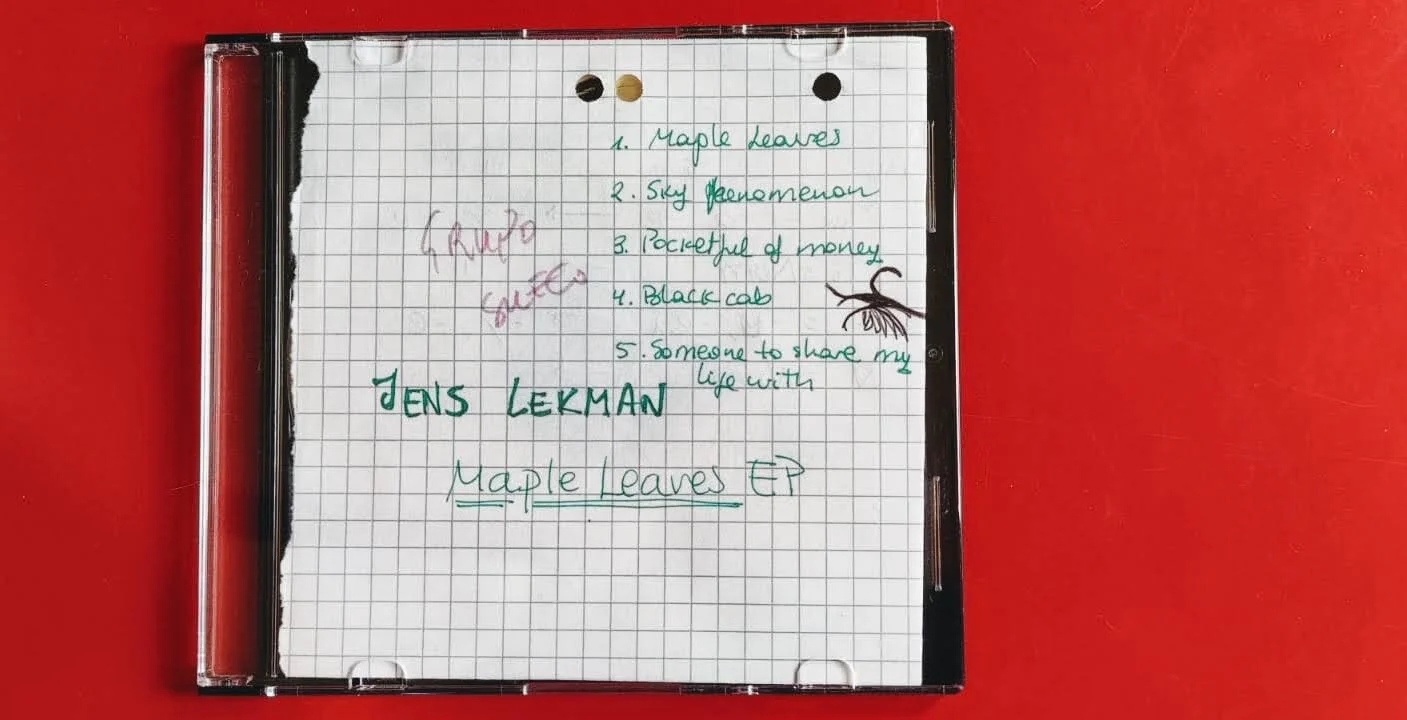 1. Maple Leaves
2. Sky phenomenon
3. Pocketful of money
4. Black cab
5. Someone to share my
life with
GRUPO
SUECO
JENS LEKMAN
Maple Leaves EP